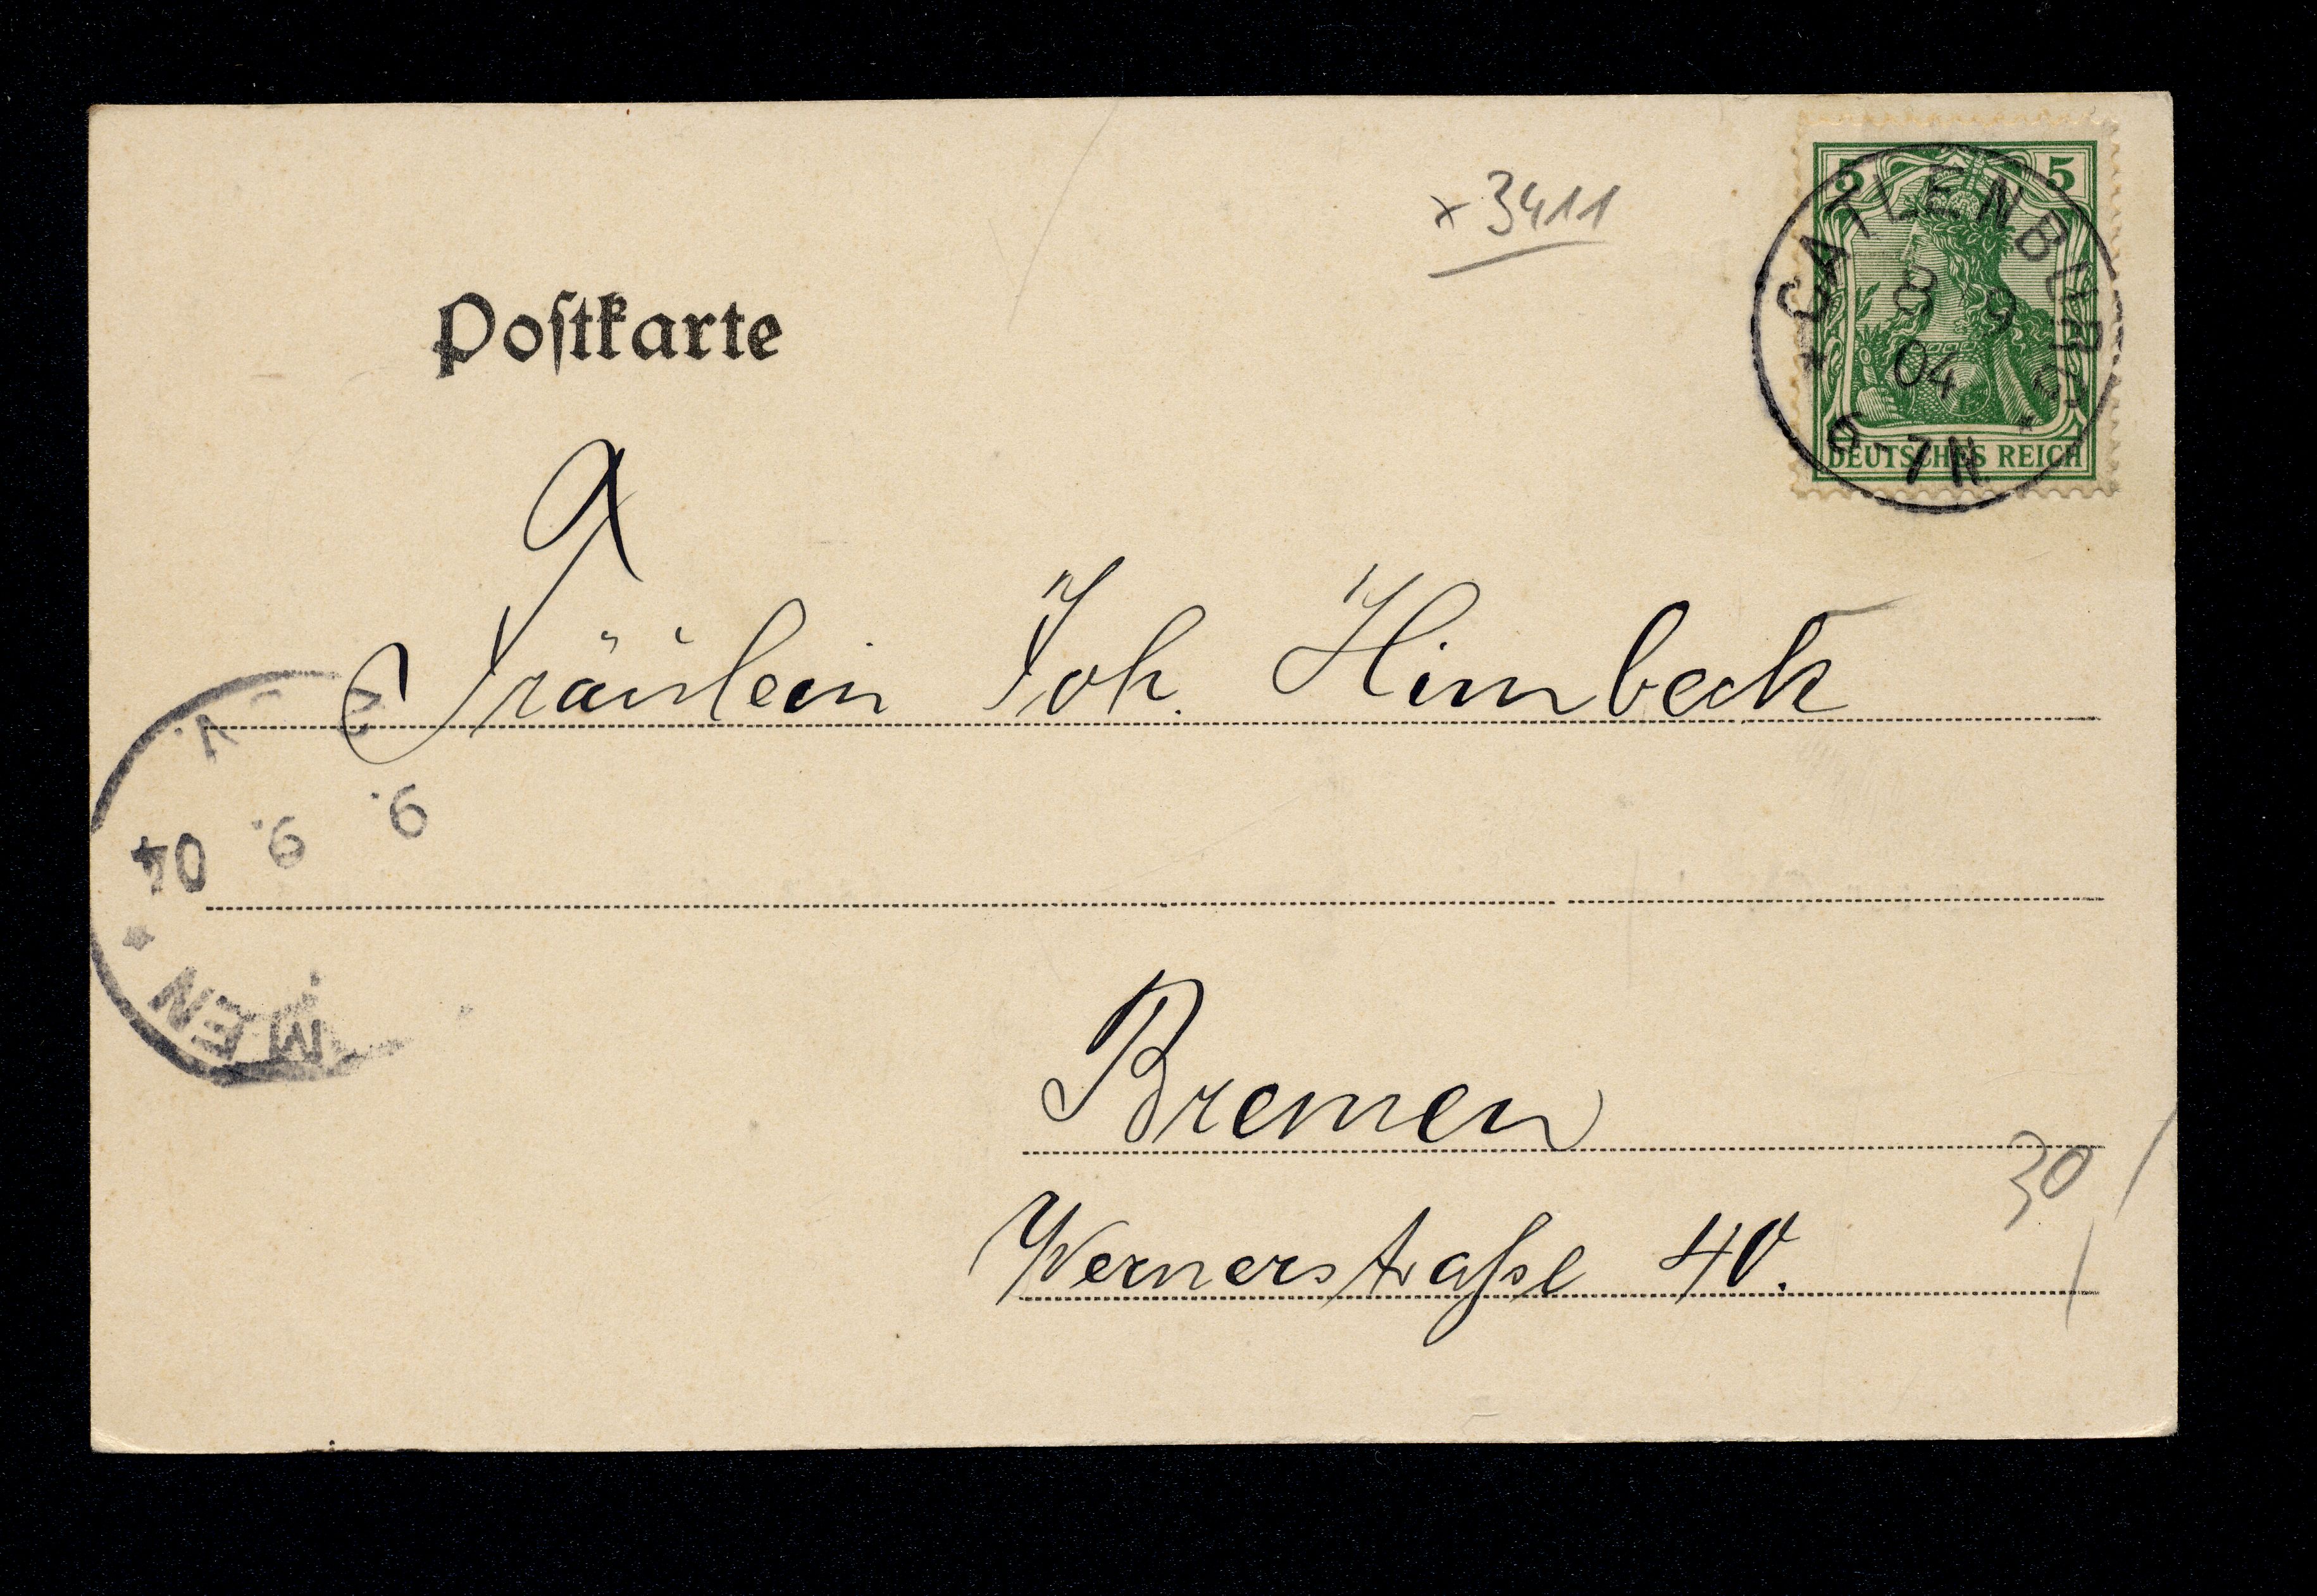 x 3411
5 5
DEUTSCHES REICH
* CATLENBURG *
8 9
04
6-7N
Postkarte
Fräulein Joh. Himbeck
V.
9. 9. 04
MEN *
Bremen
30
Wernerstraße 40.